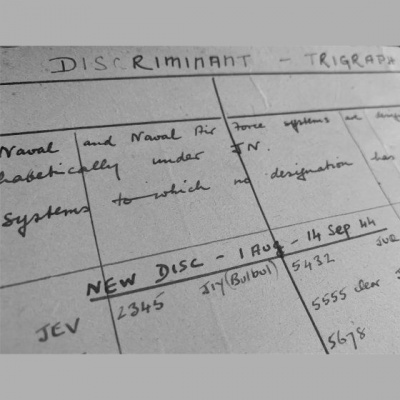 DISCRIMINANT - TRIGRAPH
Naval and Naval Air Force systems are
habetically under JN.
Systems to which no designation has
NEW DISC - 1 Aug - 14 Sep 44
JEV 2345 JIY (Bulbul) 5432 JUR
5555 clear J
5678